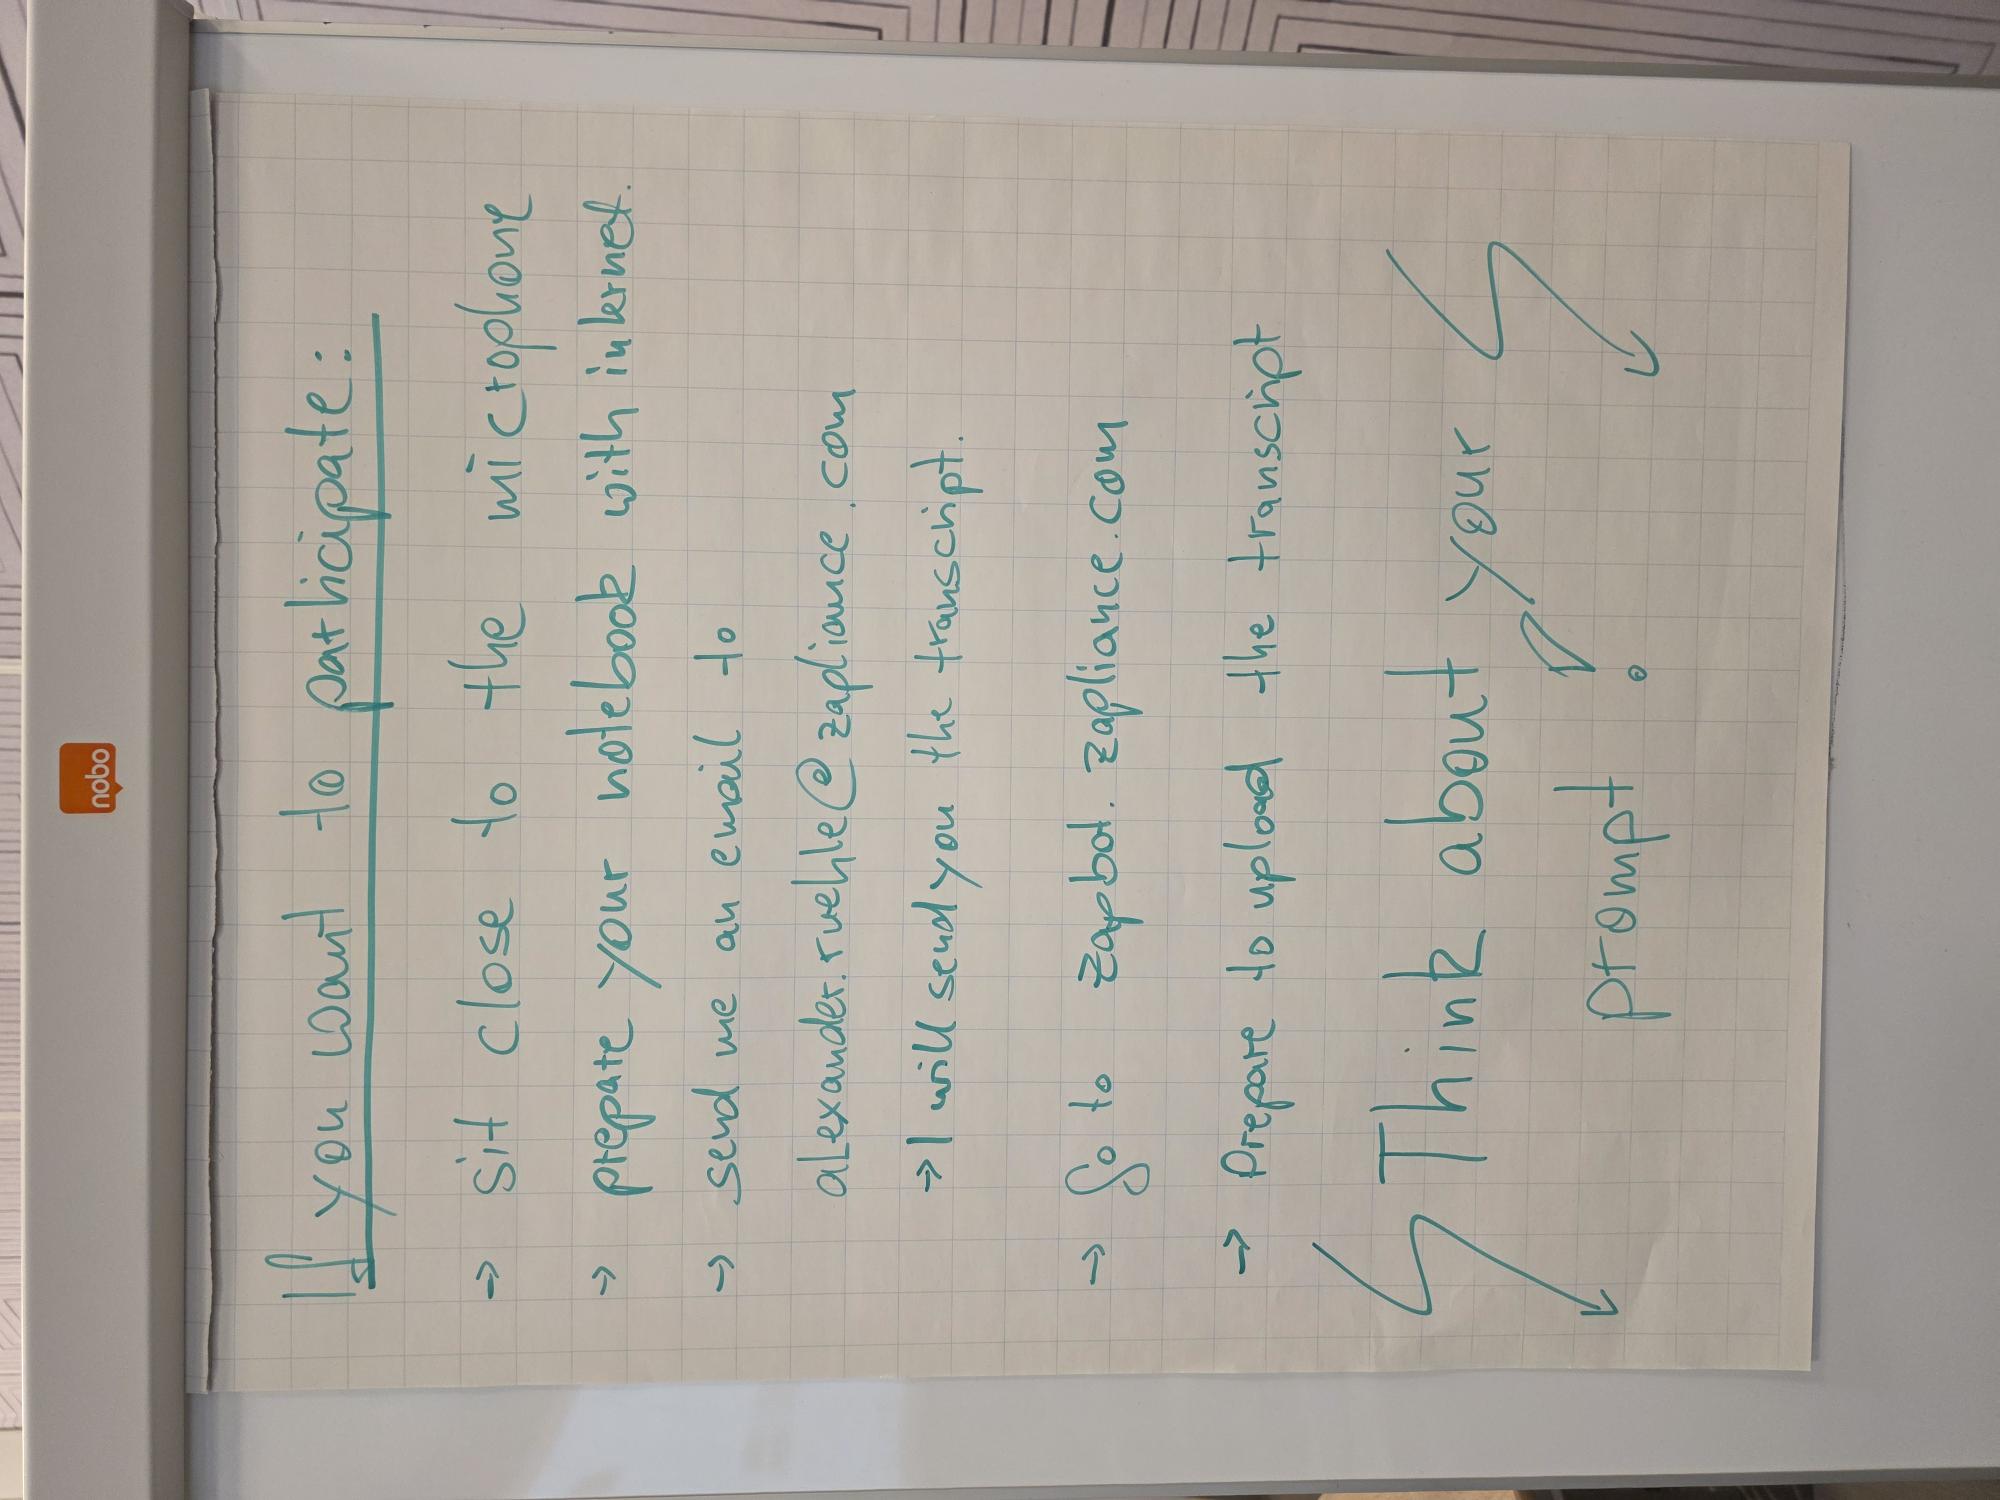 nobo
If you want to participate:
→ sit close to the microphone
→ prepare your notebook with internet.
→ send me an email to
alexander.ruehle@zapliance.com
→ I will send you the transcript.
→ Go to zapbot.zapliance.com
→ Prepare to upload the transcript
Think about your
prompt!